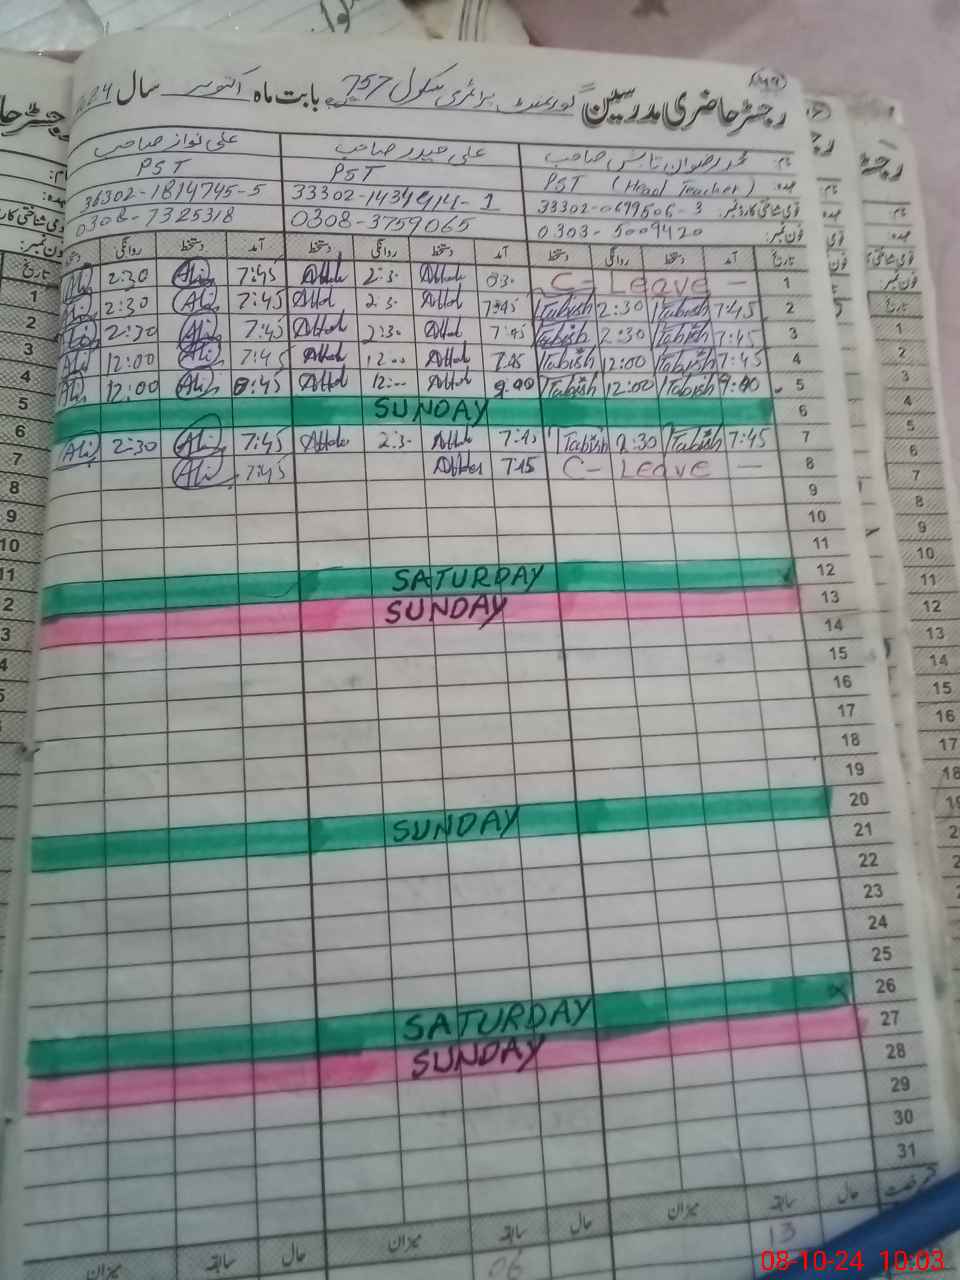 رجسٹر حاضری مدرسین گورنمنٹ پرائمری سکول 757 بابت ماہ اکتوبر سال
نام: محمد رضوان تابش صاحب علی حیدر صاحب علی نواز صاحب
عہدہ: PST (Head Teacher) PST PST
قومی شناختی کارڈ نمبر: 33302-0699506-3 33302-1434914-1 36302-1814745-5
فون نمبر: 0303-5009420 0308-3759065 0308-7325318
تاریخ آمد دستخط روانگی دستخط آمد دستخط روانگی دستخط آمد دستخط روانگی دستخط
1 C- Leave — 2:30 7:45 Ali 2:30 Ali
2 7:45 Tabish 2:30 Tabish 7:45 2:30 7:45 Ali 2:30 Ali
3 7:45 Tabish 2:30 Tabish 7:45 2:30 7:45 Ali 2:30 Ali
4 7:45 Tabish 12:00 Tabish 7:45 12:00 7:45 Ali 12:00 Ali
5 Tabish 12:00 Tabish 9:00 12:00 8:45 Ali 12:00 Ali
6 SUNDAY
7 7:45 Tabish 2:30 Tabish 7:45 2:30 7:45 Ali 2:30 Ali
8 C- Leave — 7:45 7:45 Ali
9
10
11
12 SATURDAY
13 SUNDAY
14
15
16
17
18
19
20 SUNDAY
21
22
23
24
25
26 SATURDAY
27 SUNDAY
28
29
30
31
حال سابقہ میزان حال سابقہ میزان حال سابقہ میزان
13 06
08-10-24 10:03